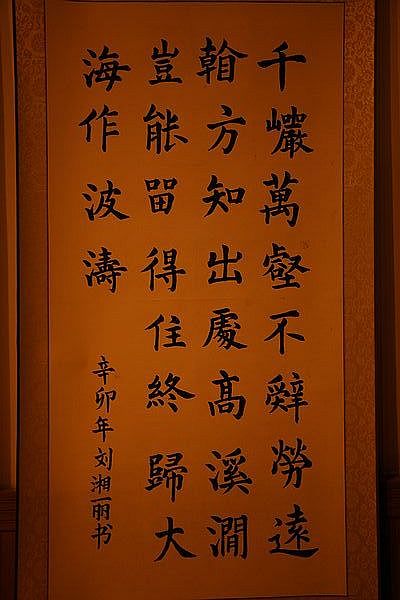 千巖萬壑不辭勞遠
看方知出處高溪澗
豈能留得住終歸大
海作波濤
辛卯年刘湘丽书